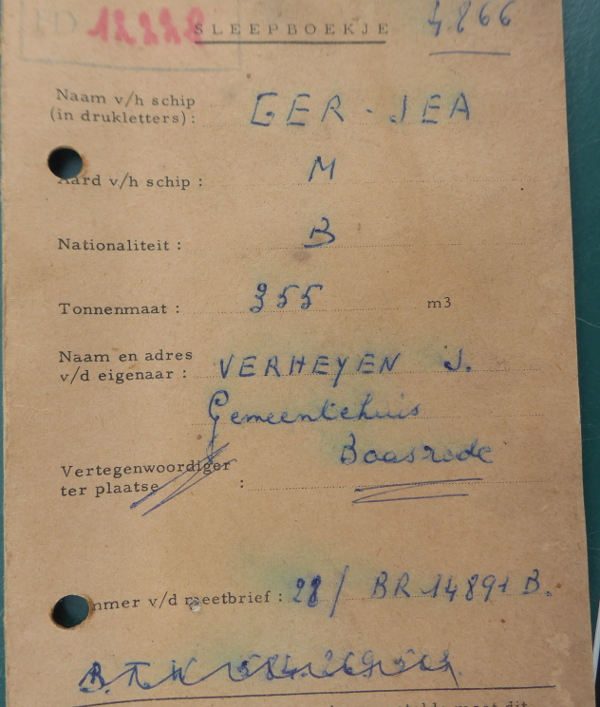 HD 12228 SLEEPBOEKJE 4.866
Naam v/h schip
(in drukletters) : GER - JEA
Aard v/h schip : M
Nationaliteit : B
Tonnenmaat : 355 m3
Naam en adres
v/d eigenaar : VERHEYEN J.
Gemeentehuis
Baasrode
Vertegenwoordiger
ter plaatse :
mmer v/d meetbrief : 28 / BR 14891 B.
B.T.W